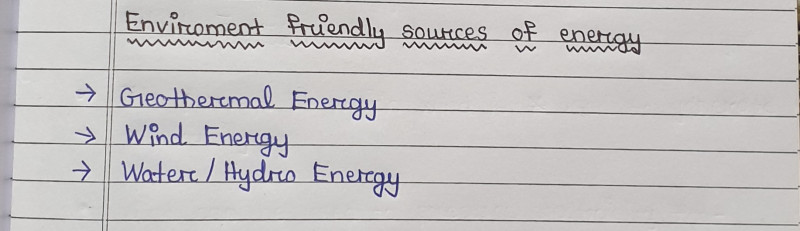 Enviroment friendly sources of energy
→ Geothermal Energy
→ Wind Energy
→ Water / Hydro Energy